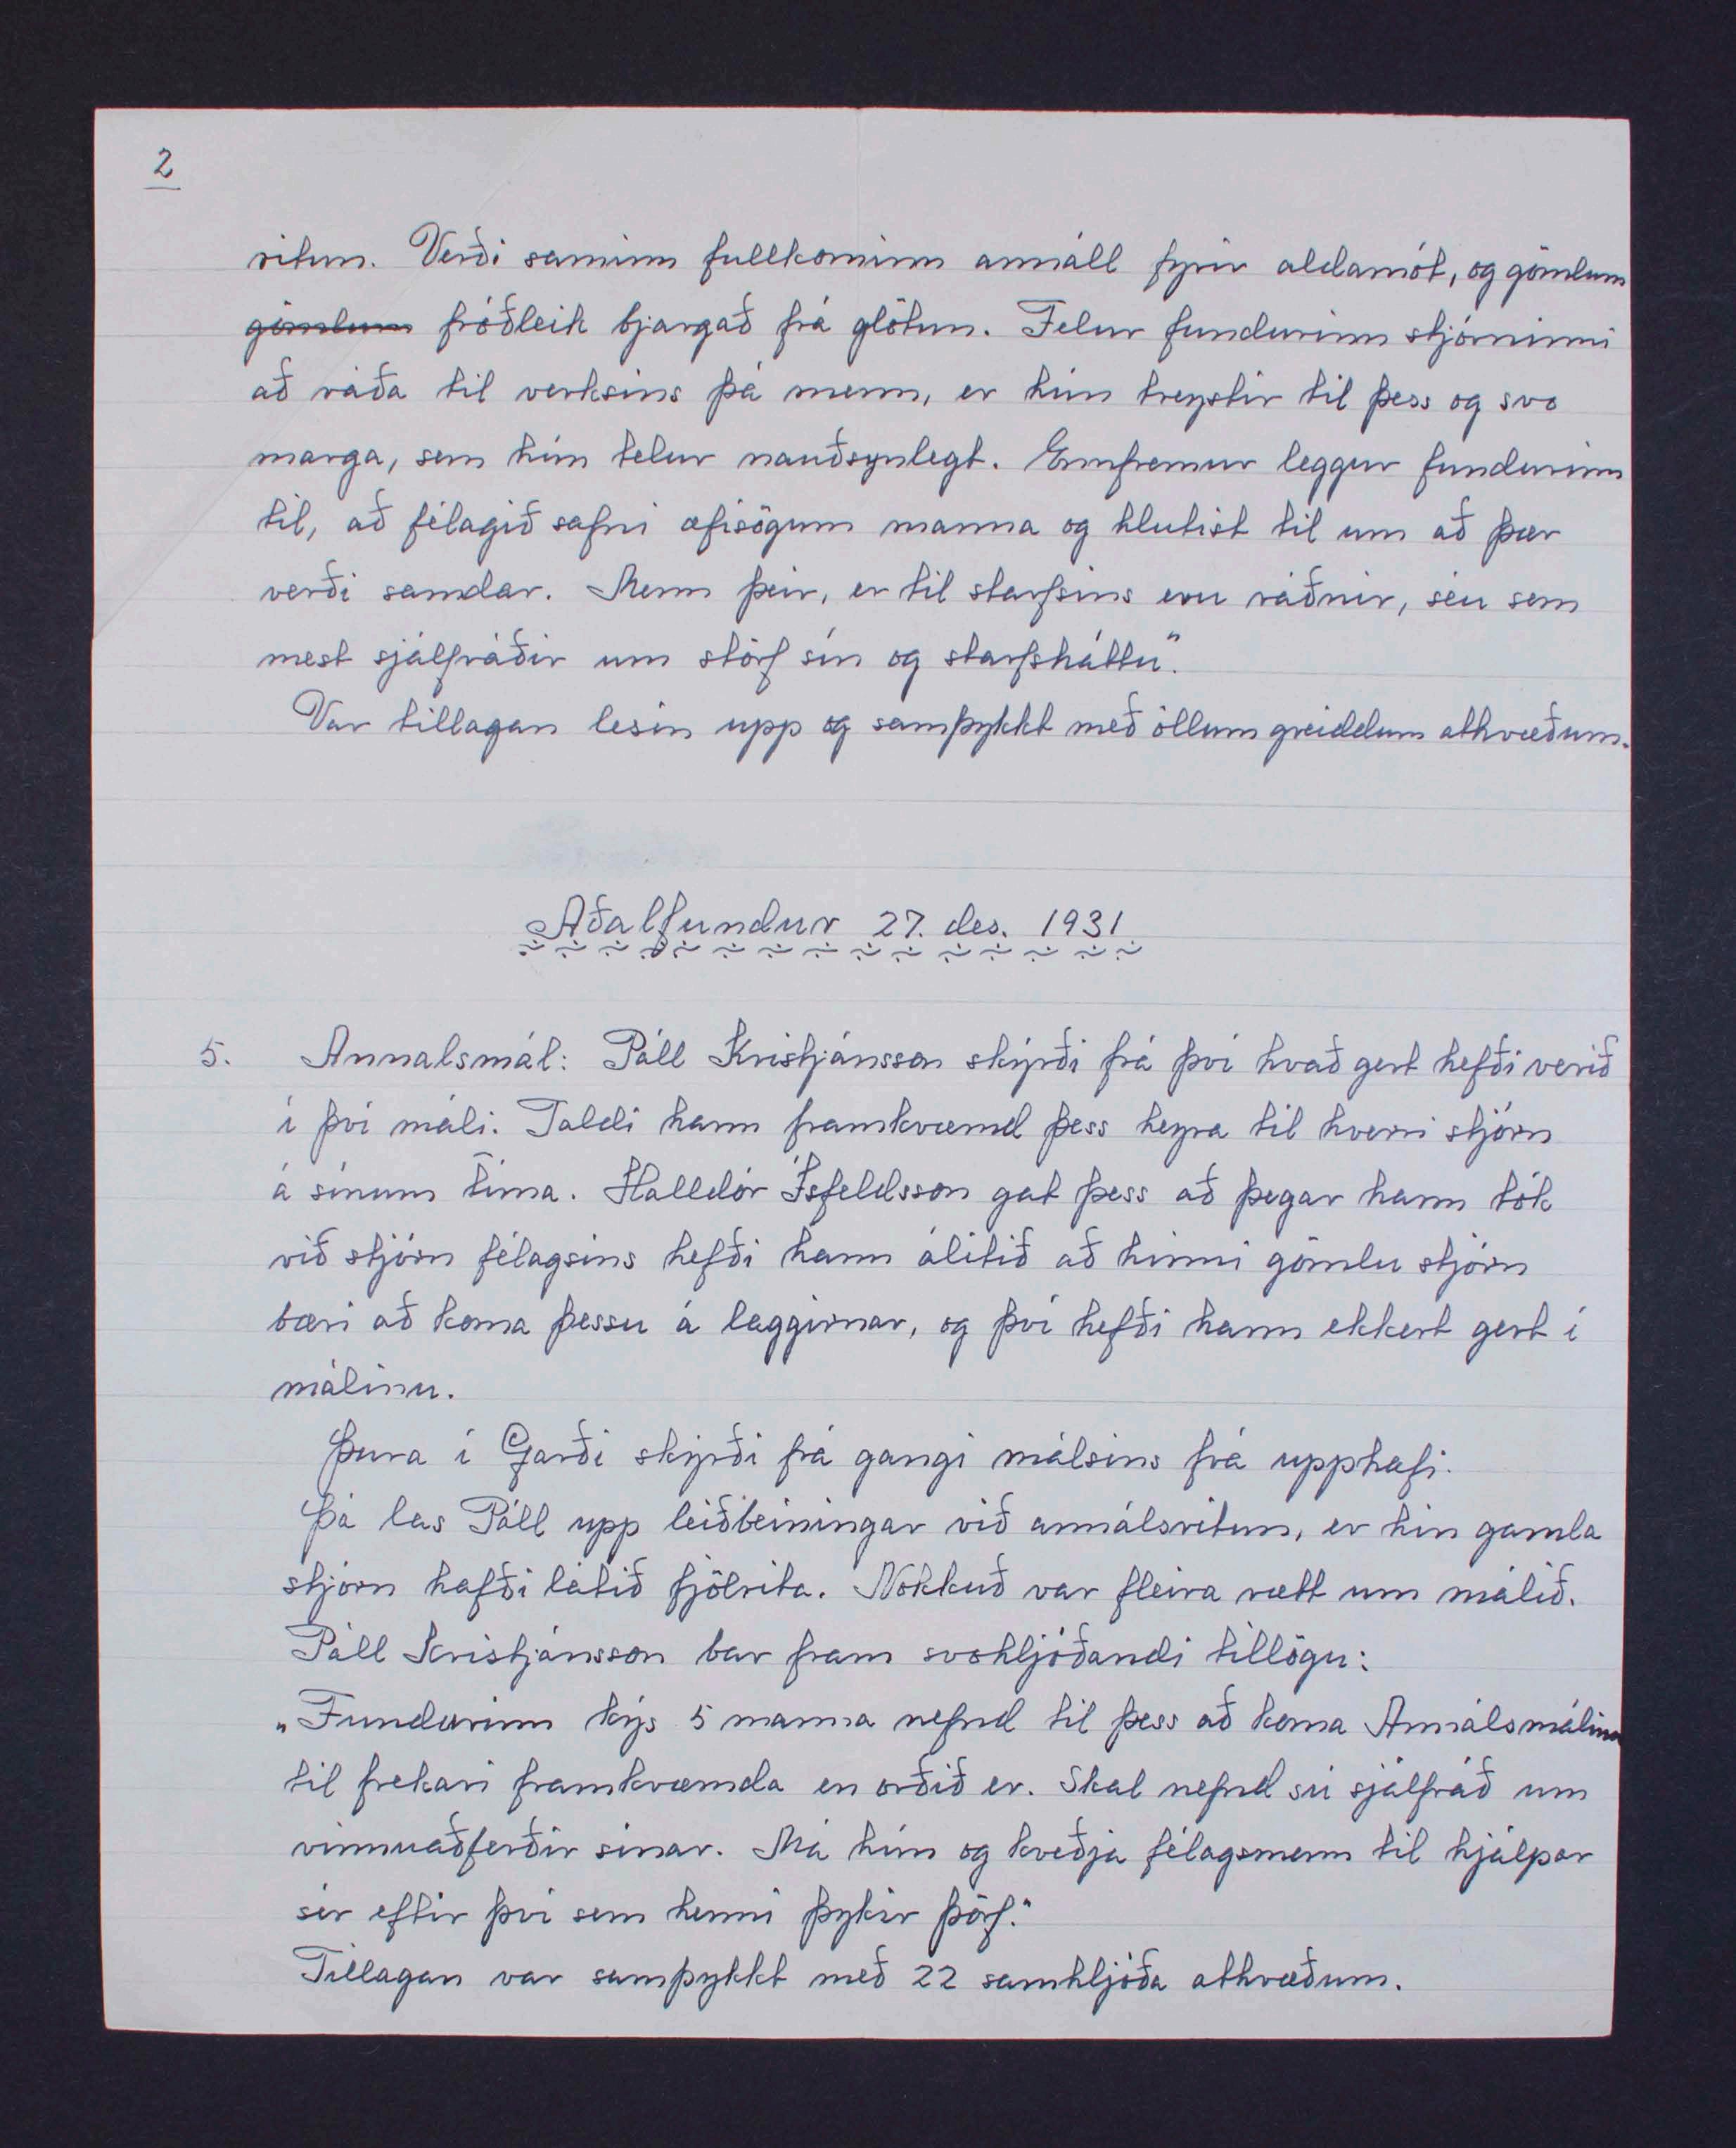 2
ritun. Verði saminn fullkominn annáll fyrir aldamót, og gömlum
gömlum fróðleik bjargað frá glötun. Felur fundurinn stjórninni
að ráða til verksins þá menn, er hún treystir til þess og svo
marga, sem hún telur nauðsynlegt. Ennfremur leggur fundurinn
til, að félagið safni æfisögum manna og hlutist til um að þær
verði samdar. Menn þeir, er til starfsins eru ráðnir, séu sem
mest sjálfráðir um störf sín og starfsháttu".
Var tillagan lesin upp og samþykkt með öllum greiddum atkvæðum.
Aðalfundur 27. des. 1931
5. Annalsmál: Páll Kristjánsson skýrði frá því hvað gert hefði verið
í því máli. Taldi hann framkvæmd þess heyra til hverri stjórn
á sínum tíma. Halldór Ísfeldsson gat þess að þegar hann tók
við stjórn félagsins hefði hann álitið að hinni gömlu stjórn
bæri að koma þessu á laggirnar, og því hefði hann ekkert gert í
málinu.
Þura í Garði skýrði frá gangi málsins frá upphafi.
Þá las Páll upp leiðbeiningar við annálsritun, er hin gamla
stjórn hafði látið fjölrita. Nokkuð var fleira rætt um málið.
Páll Kristjánsson bar fram svohljóðandi tillögu:
„Fundurinn kýs 5 manna nefnd til þess að koma Annálsmálinu
til frekari framkvæmda en orðið er. Skal nefnd sú sjálfráð um
vinnuaðferðir sínar. Má hún og kveðja félagsmenn til hjálpar
sér eftir því sem henni þykir þörf."
Tillagan var samþykkt með 22 samhljóða atkvæðum.